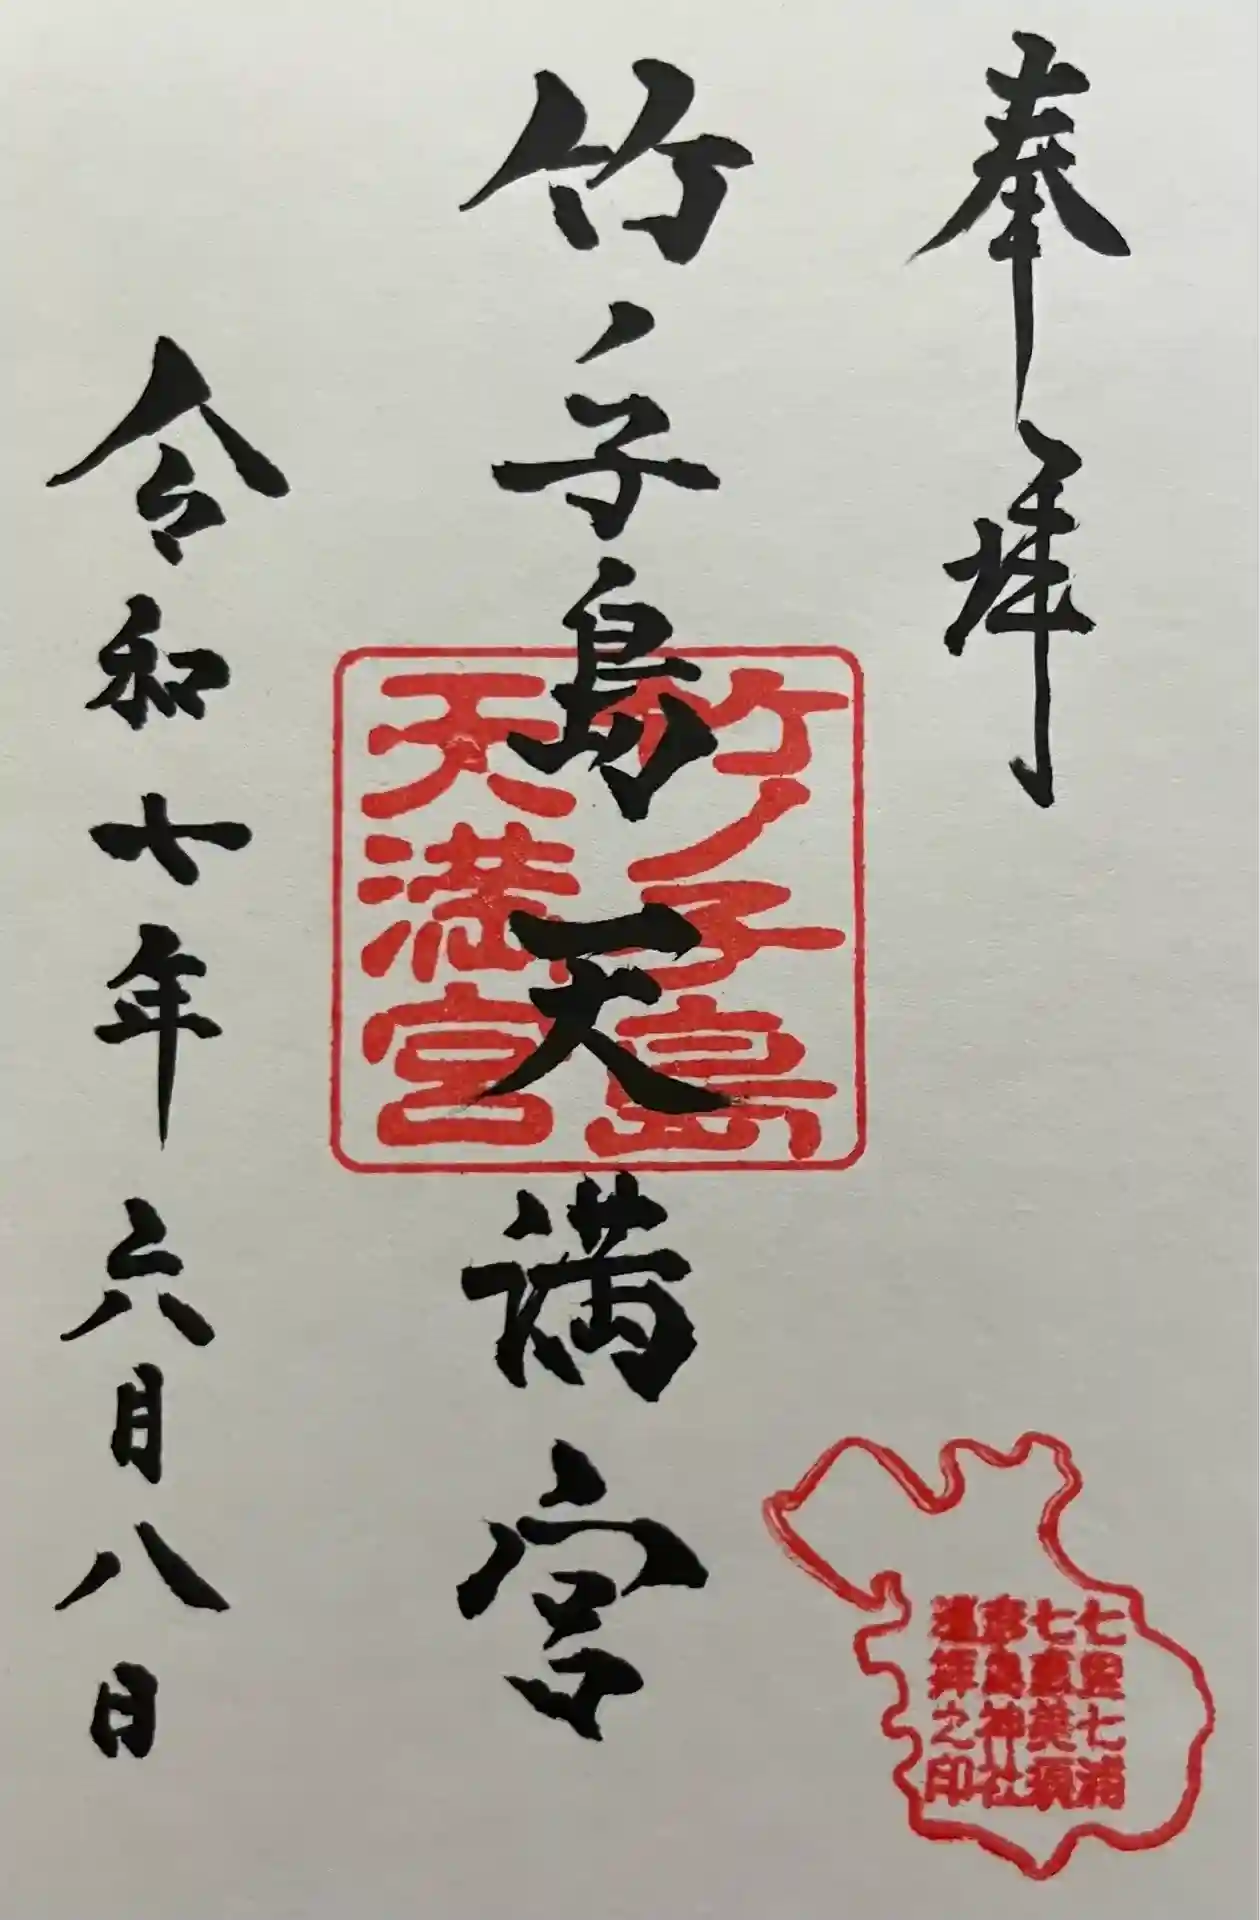 奉拝
竹子島天満宮
竹ノ子島
天満宮
令和七年六月八日
七里七浦
七恵美須
彦島神社
遥拝之印